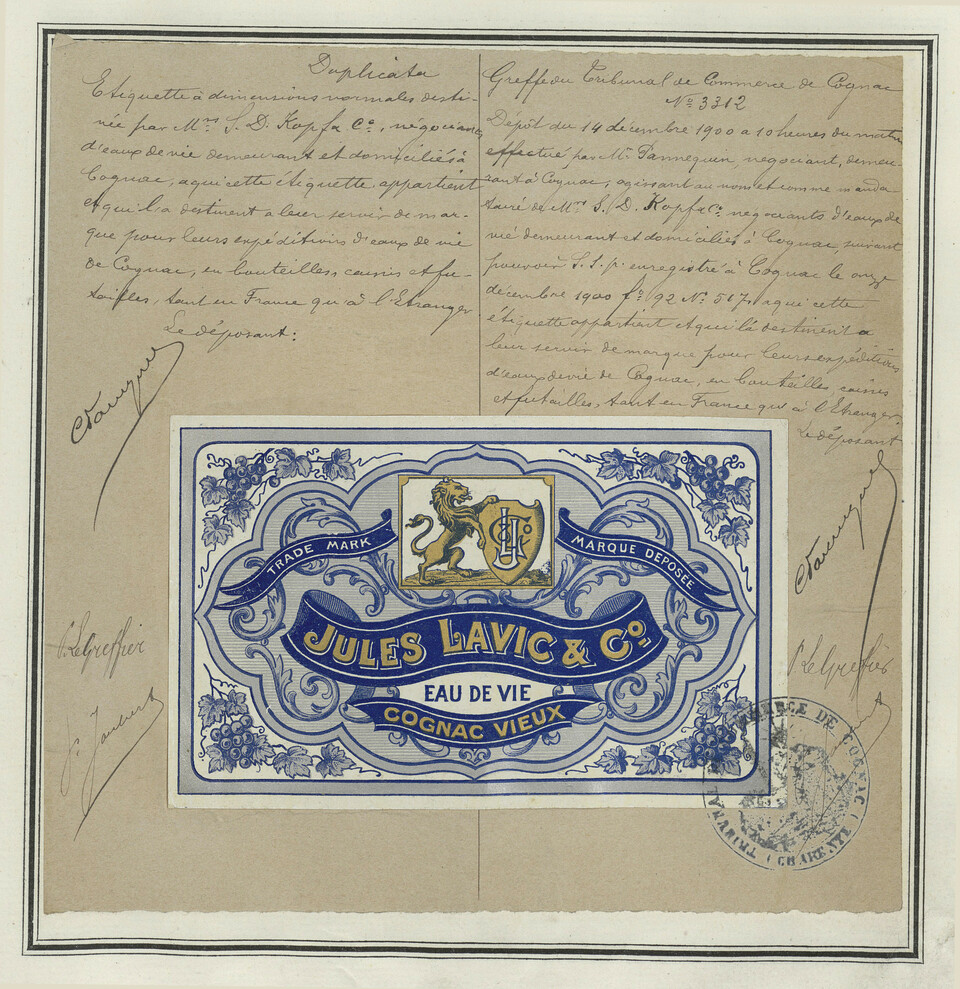 Duplicata
Etiquette à dimensions normales desti-
née par Mrs S. D. Kopf & Co, négociants
d'eaux de vie demeurant et domiciliés à
Cognac, à qui cette étiquette appartient
et qui l'a destinent à leur servir de mar-
que pour leurs expéditions d'eaux de vie
de Cognac, en bouteilles, caisses et fu-
tailles, tant en France qu'à l'Etranger.
Le déposant:
P. Le Greffier
Greffe du Tribunal de Commerce de Cognac
No 3312
Dépôt du 14 décembre 1900 à 10 heures du matin
effectué par Mr Pannequin, négociant, demeu-
rant à Cognac, agissant au nom et comme manda-
taire de Mrs S. D. Kopf & Co négociants d'eaux de
vie demeurant et domiciliés à Cognac, suivant
pouvoir S.S.p. enregistré à Cognac le onze
décembre 1900 fo 92 No 517, à qui cette
étiquette appartient et qui la destinent à
leur servir de marque pour leurs expéditions
d'eaux de vie de Cognac, en bouteilles caisses
et futailles, tant en France qu'à l'Etranger.
Le déposant
P. Le Greffier
TRADE MARK
MARQUE DEPOSEE
JL & Co
JULES LAVIC & Co
EAU DE VIE
COGNAC VIEUX
TRIBUNAL DE COMMERCE DE COGNAC (CHARENTE)